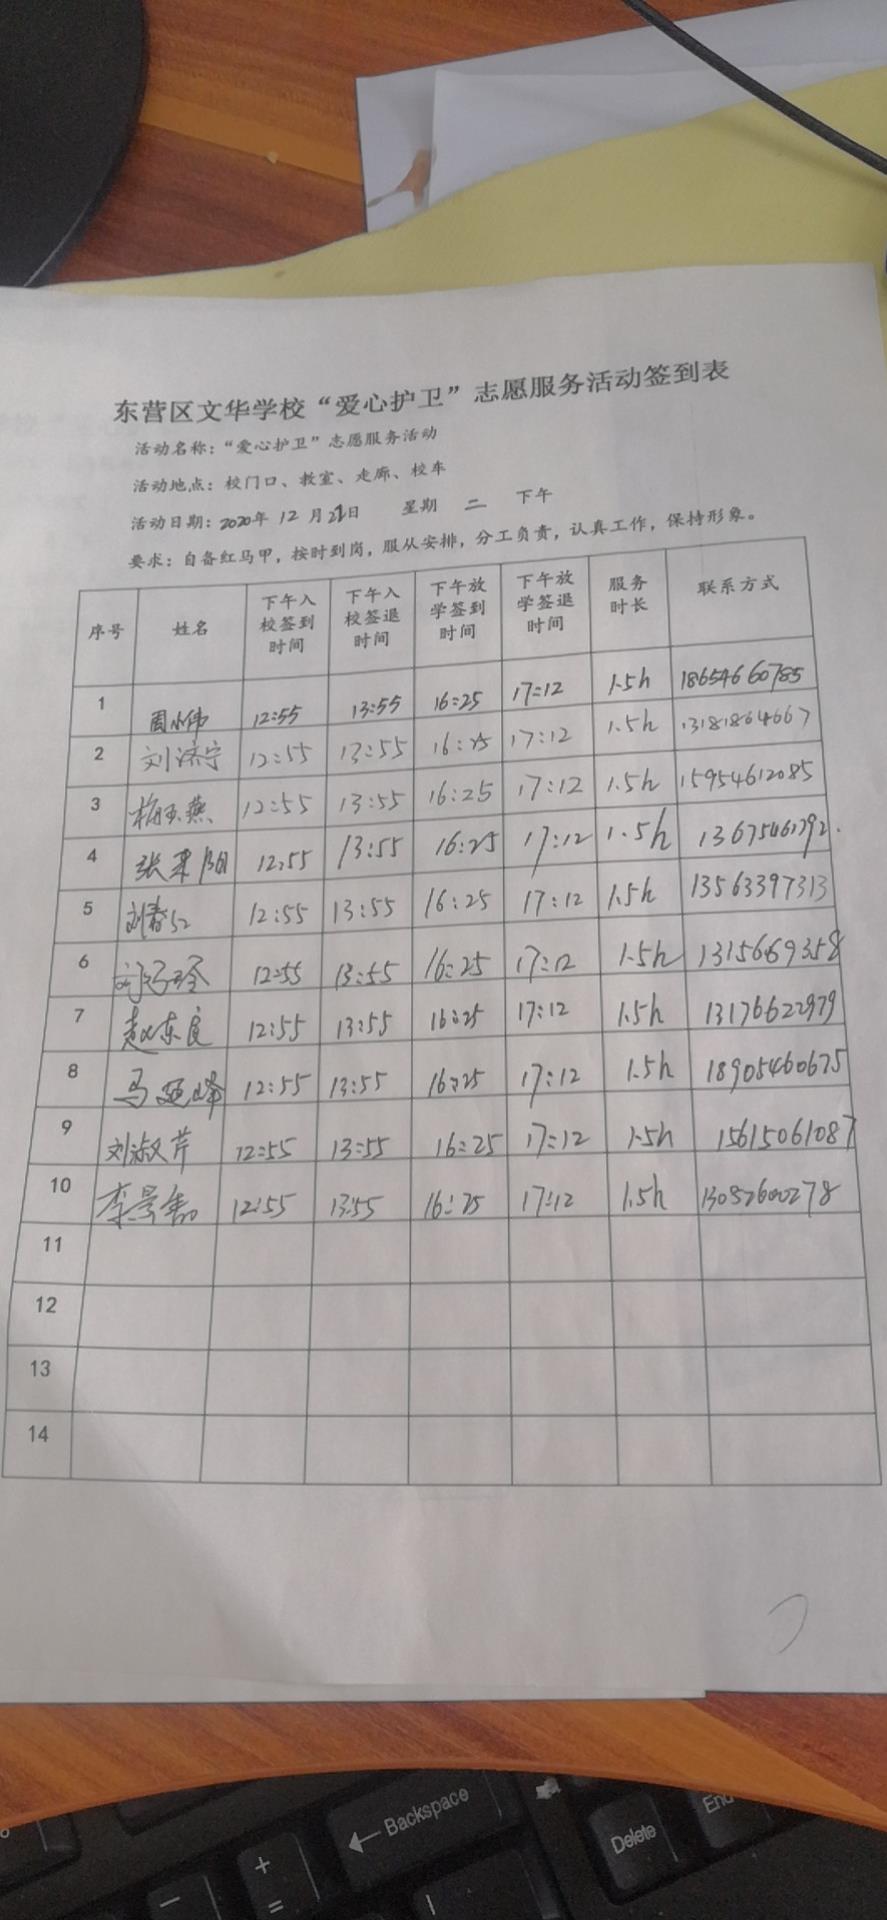 东营区文华学校“爱心护卫”志愿服务活动签到表
活动名称：“爱心护卫”志愿服务活动
活动地点：校门口、教室、走廊、校车
活动日期：2020年 12月 日 星期 二 下午
要求：自备红马甲，按时到岗，服从安排，分工负责，认真工作，保持形象。
序号 姓名 下午入校签到时间 下午入校签退时间 下午放学签到时间 下午放学签退时间 服务时长 联系方式
1 周小伟 12:55 13:55 16:25 17:12 1.5h 18654660785
2 刘济宁 12:55 13:55 16:25 17:12 1.5h 13181864667
3 梅玉燕 12:55 13:55 16:25 17:12 1.5h 15954612085
4 张 阳 12:55 13:55 16:25 17:12 1.5h 13675461792
5 刘春 12:55 13:55 16:25 17:12 1.5h 13563397313
6 12:55 13:55 16:25 17:12 1.5h
7 赵东良 12:55 13:55 16:25 17:12 1.5h 13176622979
8 马延峰 12:55 13:55 16:25 17:12 1.5h 18905460675
9 刘淑芹 12:55 13:55 16:25 17:12 1.5h 15615061087
10 李景 12:55 13:55 16:25 17:12 1.5h 13052600278
11
12
13
14
Backspace
Delete
End
+
=